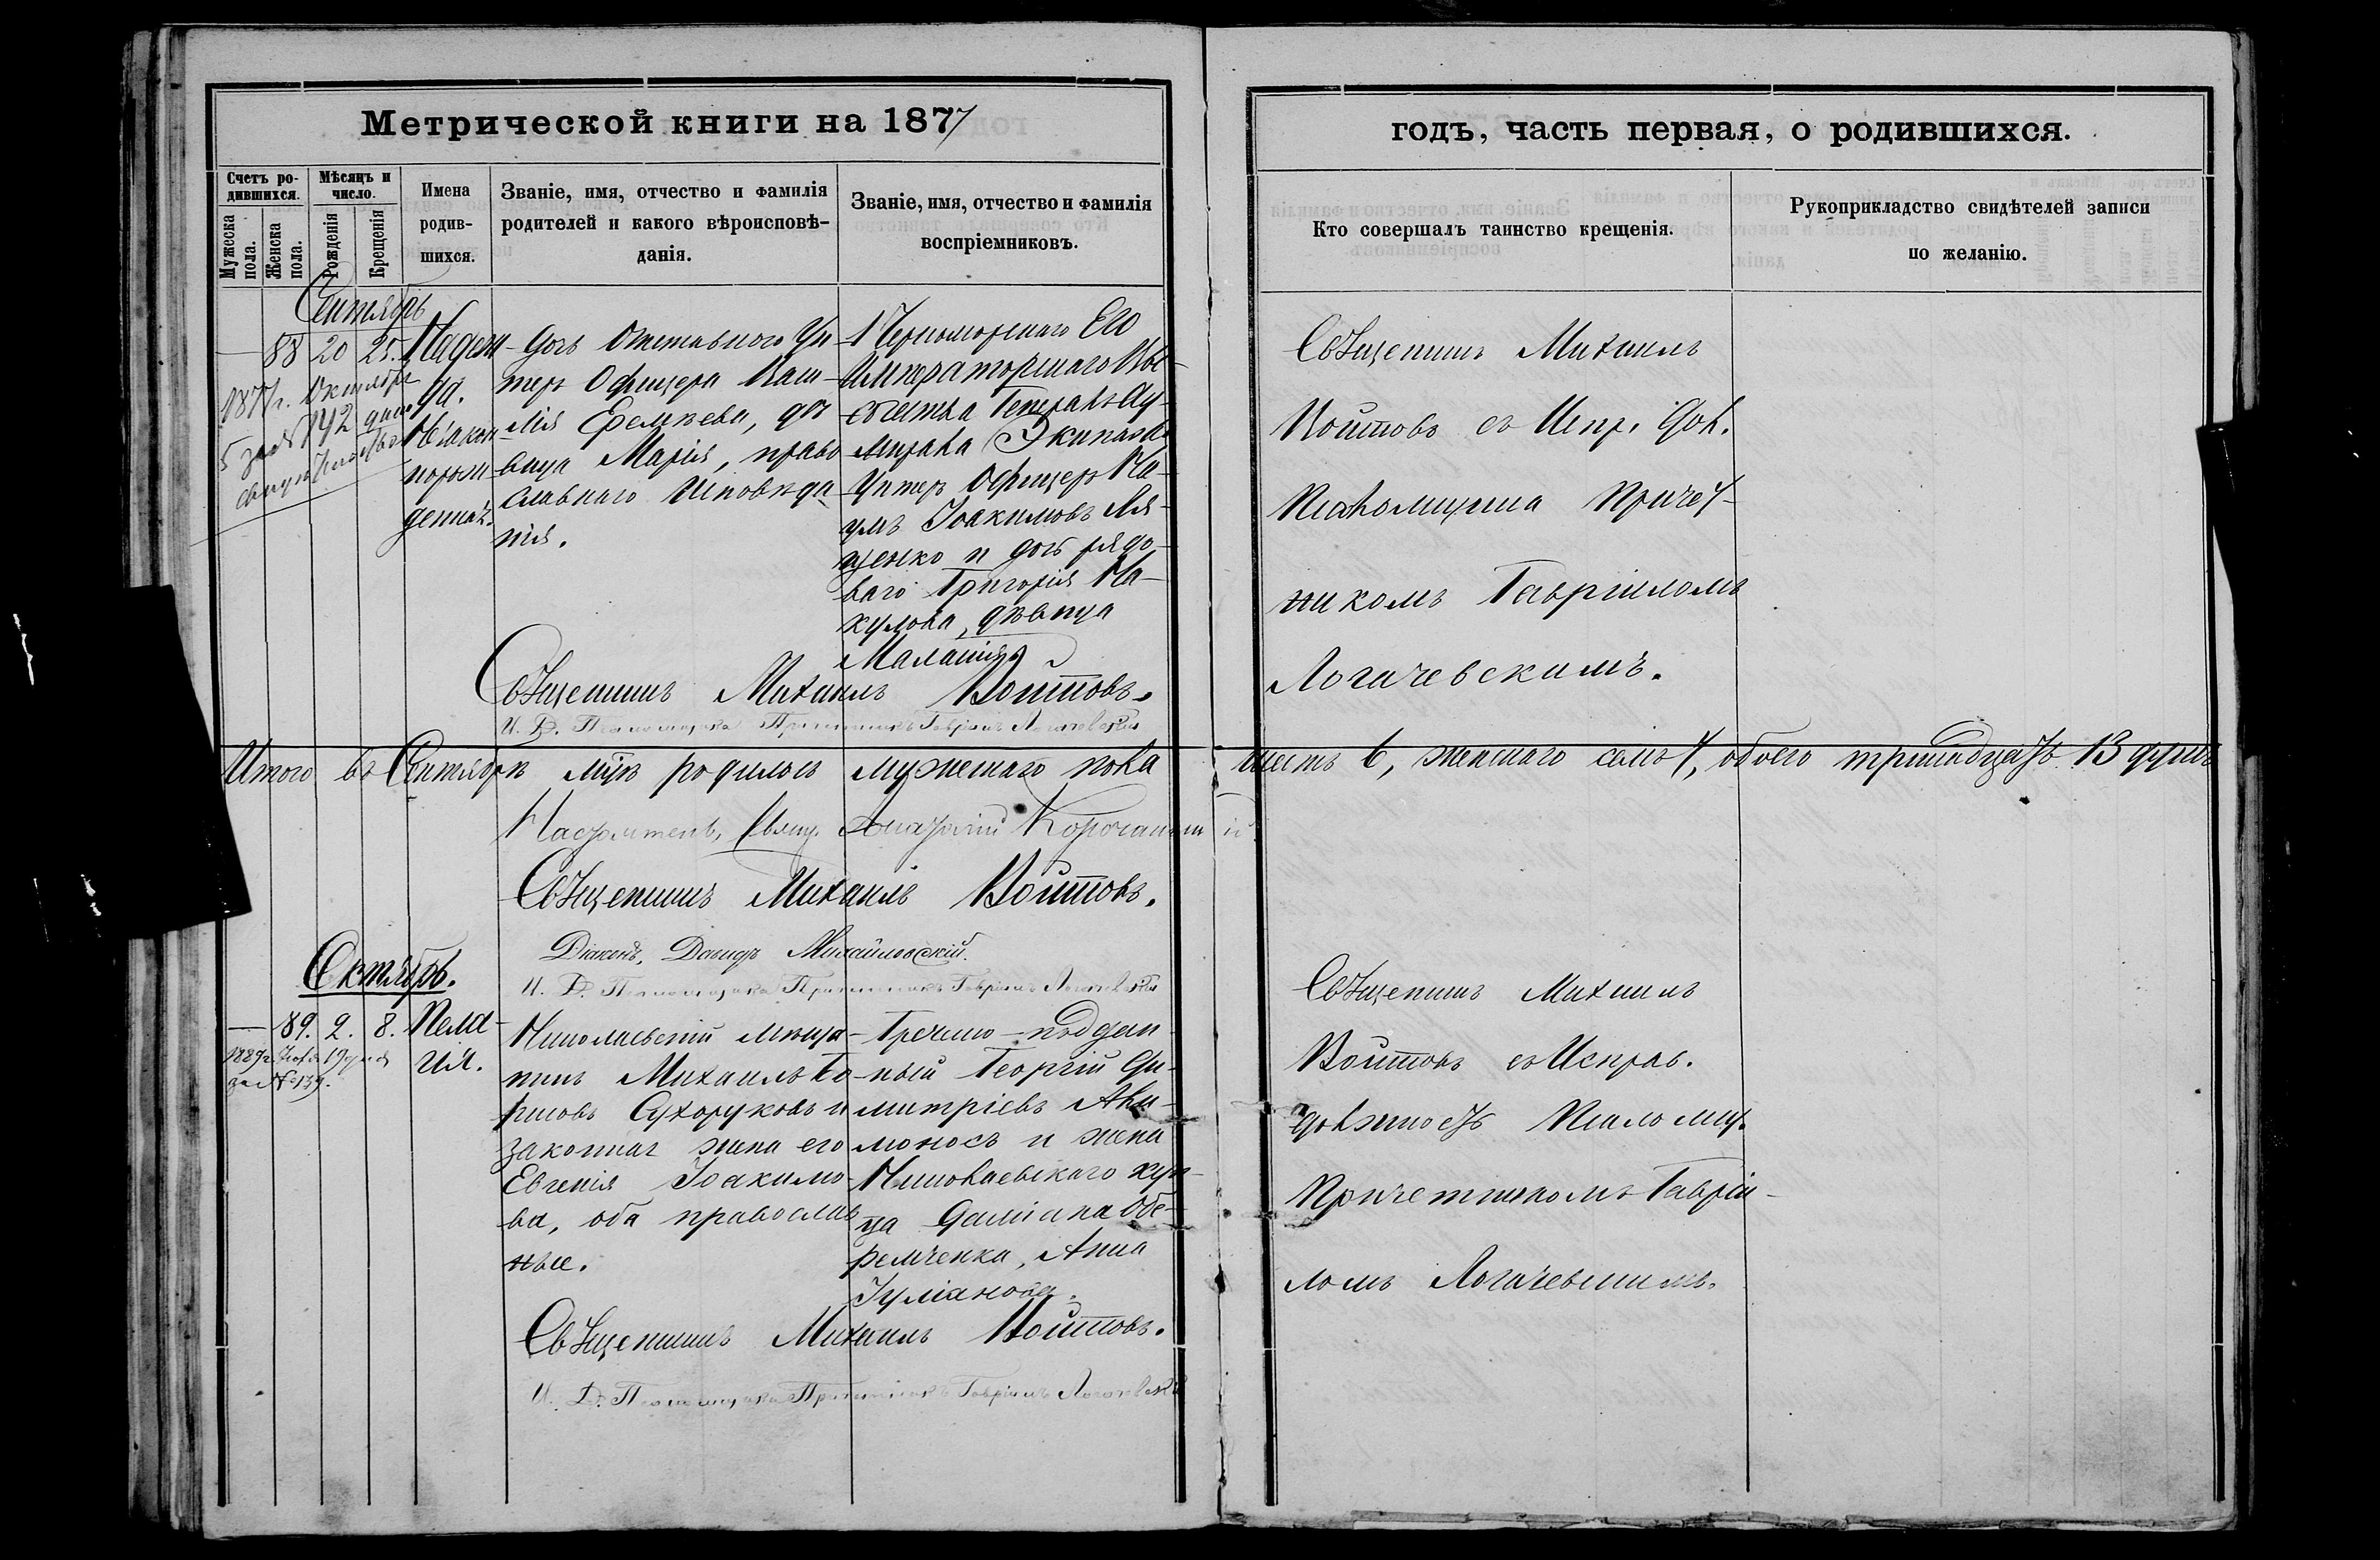 Метрической книги на 1877
годъ, часть первая, о родившихся.
Счетъ ро-
дившихся.
Мужеска
пола.
Женска
пола.
Мѣсяцъ и
число.
Рожденія
Крещенія
Имена
родив-
шихся.
Званіе, имя, отчество и фамилія
родителей и какого вѣроисповѣ-
данія.
Званіе, имя, отчество и фамилія
воспріемниковъ.
Кто совершалъ таинство крещенія.
Рукоприкладство свидѣтелей записи
по желанію.
Сентябрь
— 88 20 25.
1877г. Октября
5 дня №142
Надеж
да.
Незакон
норож
денная.
Дочь Отставного Ун
теръ Офицера Васи
лія дѣ
вица Марія, право
славнаго исповѣда
нія.
Черноморскаго Его
Императорскаго Вы-
сочества Генералъ Ад-
мирала Экипажа
Унтеръ Офицеръ На-
умъ Іоакимовъ Ля-
щенко и дочь рядо-
ваго Григорія Ма-
кулова, дѣвица
Маланія
Священникъ Михаилъ
Войтовъ съ Испр. Дол.
Псаломщика Причет-
никомъ Гавріиломъ
Логачевскимъ.
Священникъ Михаилъ Войтовъ.
И. Д. Псаломщика Причетникъ Гавріилъ Логачевскій
Итого въ Сентябрѣ м-цѣ родилось мужескаго пола шесть 6, женскаго семь 7, обоего тринадцать 13 душъ
Настоятель, Свящ. Анатолій
Священникъ Михаилъ Войтовъ.
Діаконъ, Давидъ Михайловскій.
И. Д. Псаломщика Причетникъ Гавріилъ Логачевскій
Октябрь.
— 89. 2. 8.
1889г. 19 дня
за № 139.
Пела
гія.
Николаевскій мѣща
нинъ Михаилъ Бо
рисовъ Сухоруковъ и
законная жена его
Евгенія Іоакимо
ва, оба православ
ные.
Греческо-поддан-
ный Георгій Ди-
митріевъ
и жена
Николаевскаго куп-
ца Даміана Обе-
ремченка, Анна
Іуліанова.
Священникъ Михаилъ
Войтовъ съ Исправ.
должность Псаломщ.
Причетникомъ Гавріи-
ломъ Логачевскимъ.
Священникъ Михаилъ Войтовъ.
И. Д. Псаломщика Причетникъ Гавріилъ Логачевскій